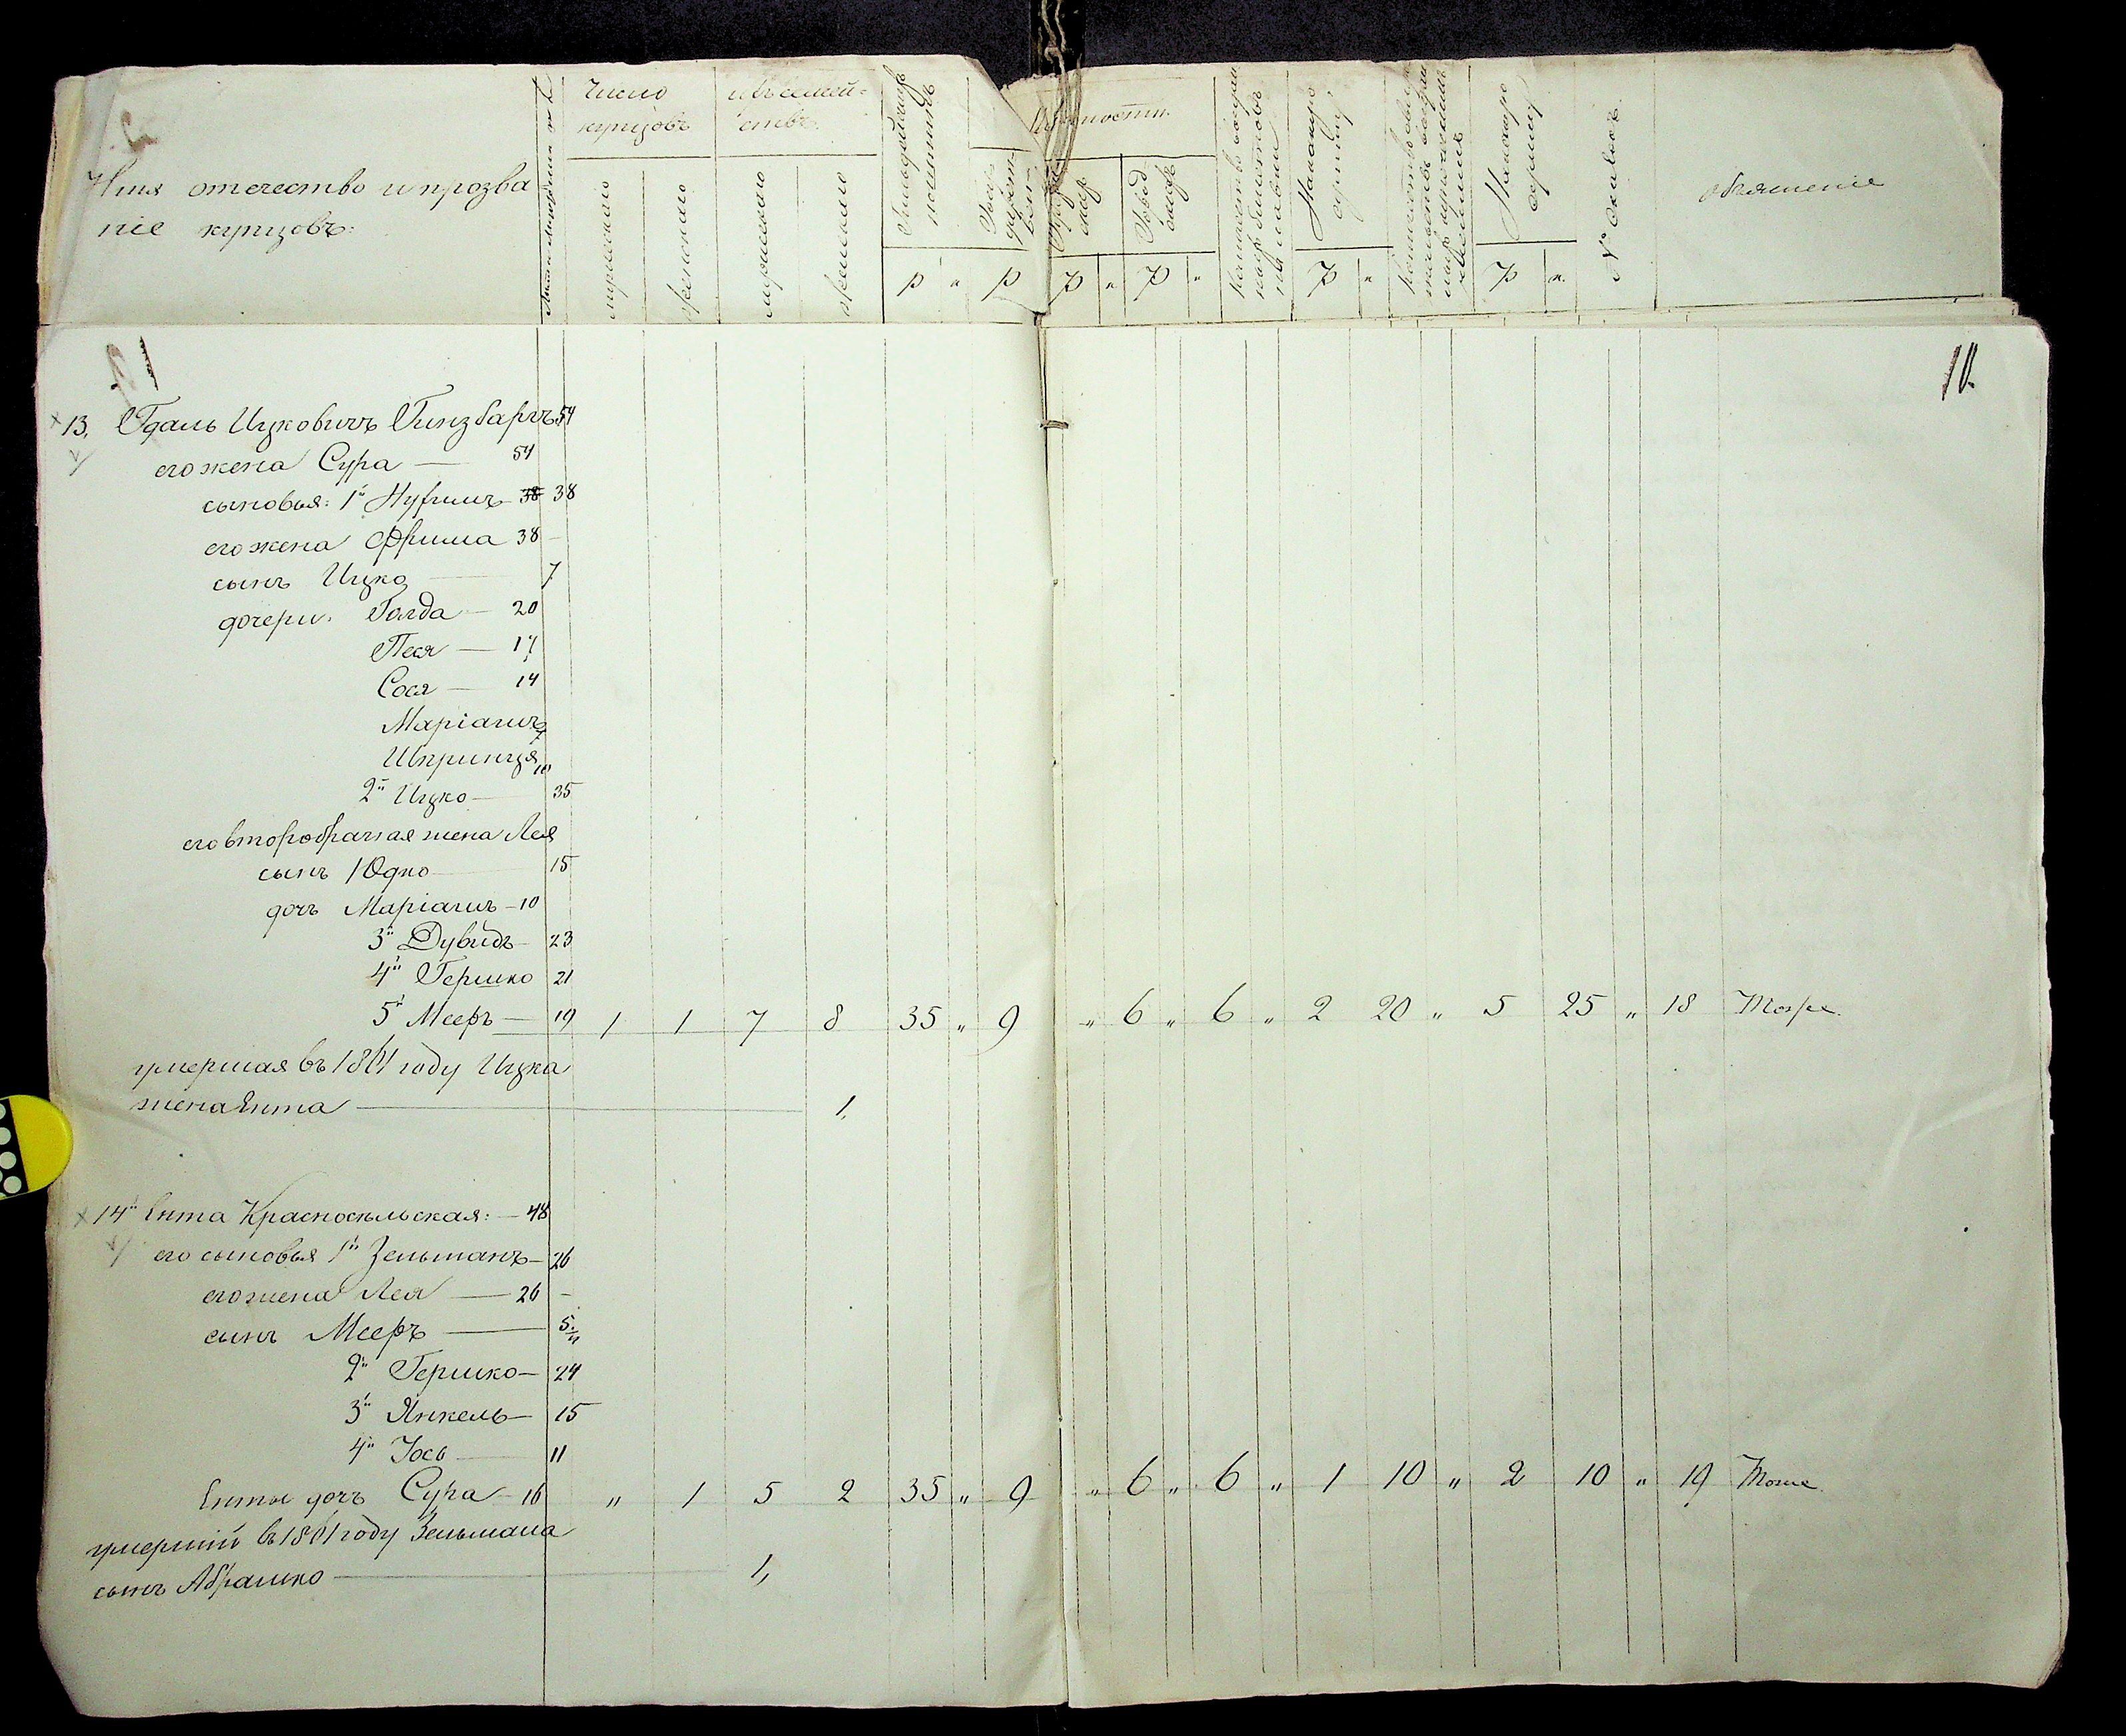 Имя отечество и прозва
ніе купцовъ:
Число купцовъ
мужескаго
женскаго
ихъ семей=ствъ
мужескаго
женскаго
р " р
р " р "
На какую сумму
р "
На какую сумму
р к.
№ оклад
объясненіе
10.
13. Гдаль Ицковичъ Гинзбаргъ 54
его жена Сура — 54
сыновья: 1й Нухимъ 38 38
его жена Фрима 38 —
сынъ Ицко — 7
дочери. Голда — 20
Песя — 17
Сося — 14
Маріагиъ
Шпринця 10
2й Ицко — 35
его второбрачная жена Лея
сынъ Юдко 15
дочъ Маріагиъ — 10
3й Дувидъ — 23
4й Гершко 21
5й Мееръ — 19 1 1 7 8 35 " 9 " 6 " 6 " 2 20 " 5 25 " 18 Тоже.
умершая въ 1861 году Ицка
жена Ента — 1,
14й Ента Красносельская: — 48
его сыновья 1й Зельманъ — 26
его жена Лея — 26 —
сынъ Мееръ — 5.
2й Гершко — 24
3й Янкель — 15
4й Іось — 11
Енты дочъ Сура — 16 " 1 5 2 35 " 9 " 6 " 6 " 1 10 " 2 10 " 19 Тоже.
умершій въ 1861 году Зельмана
сынъ Абрашко — 1,